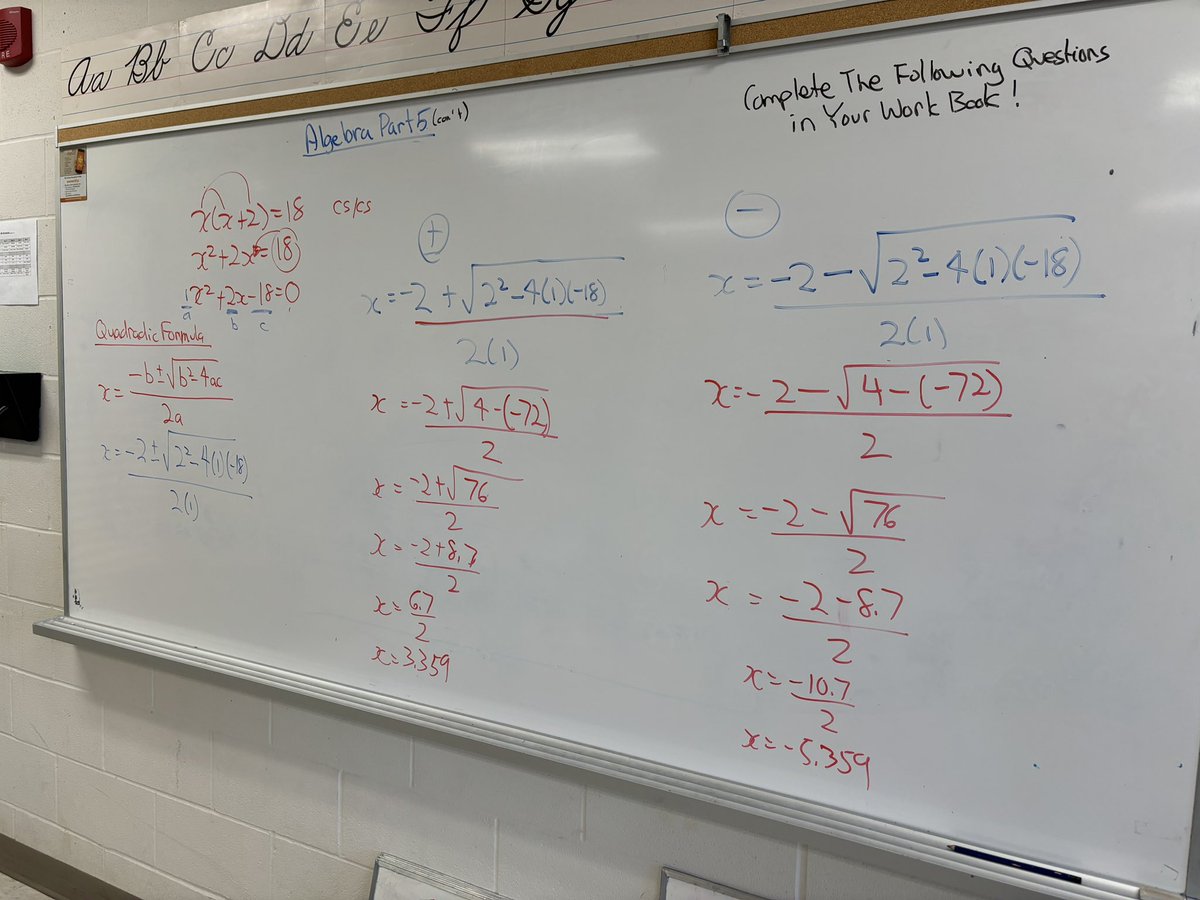 Aa Bb Cc Dd Ee Ff Gg
Algebra Part 5 (con't)
Complete The Following Questions
in Your Work Book!
x(x+2)=18 cs/cs
x²+2x=18
1x²+2x-18=0
a b c
Quadradic Formula
x=-b±√b²-4ac
2a
x=-2±√2²-4(1)(-18)
2(1)
+
x=-2+√2²-4(1)(-18)
2(1)
x=-2+√4-(-72)
2
x=-2+√76
2
x=-2+8.7
2
x=6.7
2
x=3.359
-
x=-2-√2²-4(1)(-18)
2(1)
x=-2-√4-(-72)
2
x=-2-√76
2
x=-2-8.7
2
x=-10.7
2
x=-5.359